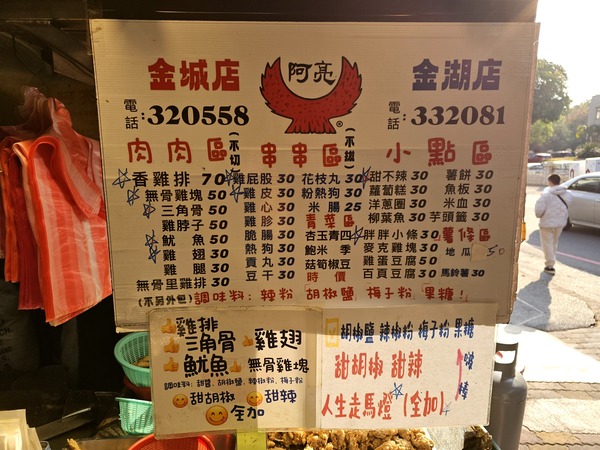 金城店
阿亮
金湖店
電話:320558
電話:332081
®
肉肉區(不切)
串串區(不辣)
小點區
香雞排 70
無骨雞塊 50
三角骨 50
雞脖子 50
魷魚 50
雞翅 30
雞腿 30
無骨里雞排 30
(不另外包)
雞屁股 30
雞皮 30
雞心 30
雞胗 30
脆腸 30
熱狗 30
貢丸 30
豆干 30
花枝丸 30
粉熱狗 30
米腸 25
青菜區
杏玉青四
鮑米季
菇筍椒豆
時價
甜不辣 30
蘿蔔糕 30
洋蔥圈 30
柳葉魚 30
胖胖小條 30
麥克雞塊 30
雞蛋豆腐 50
百頁豆腐 30
薯餅 30
魚板 30
米血 30
芋頭籤 30
薯條區
地瓜 50
馬鈴薯 30
調味料:辣粉 胡椒鹽 梅子粉 果糖!
雞排
三角骨 雞翅
魷魚 無骨雞塊
調味料:甜醬、胡椒鹽、辣椒粉、梅子粉
甜胡椒 甜辣
全加
胡椒鹽 辣椒粉 梅子粉 果糖
甜胡椒 甜辣
人生走馬燈(全加)